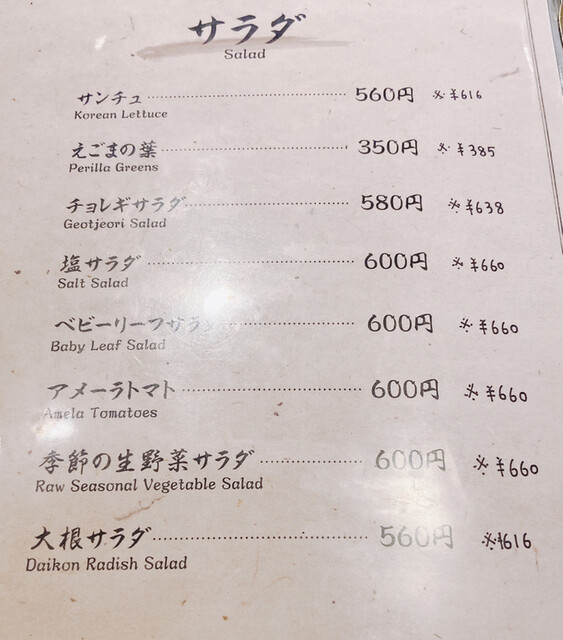 サラダ
Salad
サンチュ 560円 ※¥616
Korean Lettuce
えごまの葉 350円 ※¥385
Perilla Greens
チョレギサラダ 580円 ※¥638
Geotjeori Salad
塩サラダ 600円 ※¥660
Salt Salad
ベビーリーフサラダ 600円 ※¥660
Baby Leaf Salad
アメーラトマト 600円 ※¥660
Amela Tomatoes
季節の生野菜サラダ 600円 ※¥660
Raw Seasonal Vegetable Salad
大根サラダ 560円 ※¥616
Daikon Radish Salad